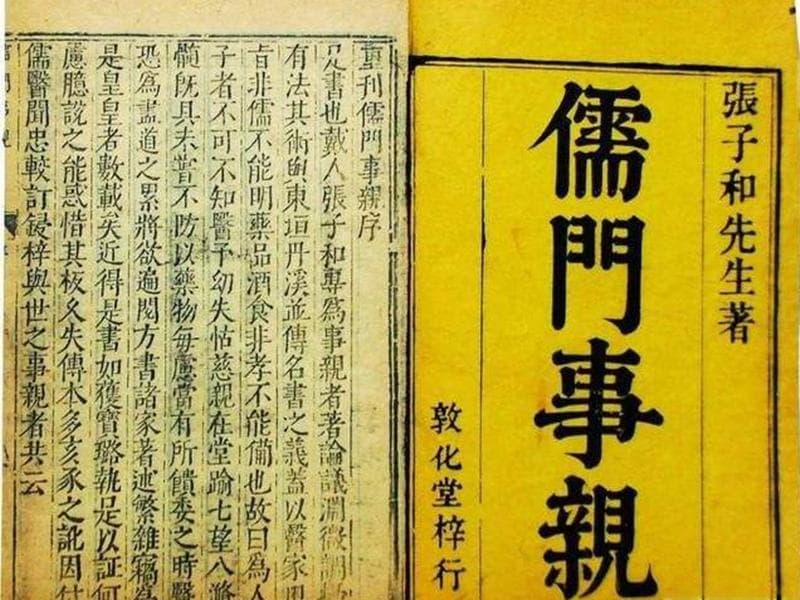 張子和先生著
儒門事親
敦化堂梓行
重刊儒門事親序
是書也戴人張子和專爲事親者著論議淵微調
有法其術與東垣丹溪並傳名書之義蓋以醫家
旨非儒不能明藥品酒食非孝不能備也故曰爲人
子者不可不知醫予幼失怙慈親在堂踰七望八滫
髓既具未嘗不防以藥物每慮當有所饋委之時醫
恐爲盡道之累將欲遍閱方書諸家著述繁雜竊爲
是皇皇者數載矣近得是書如獲寶璐執是以証何
慮臆說之能惑惜其板久失傳本多亥豕之訛因付
儒醫聞忠較訂鋟梓與世之事親者共云